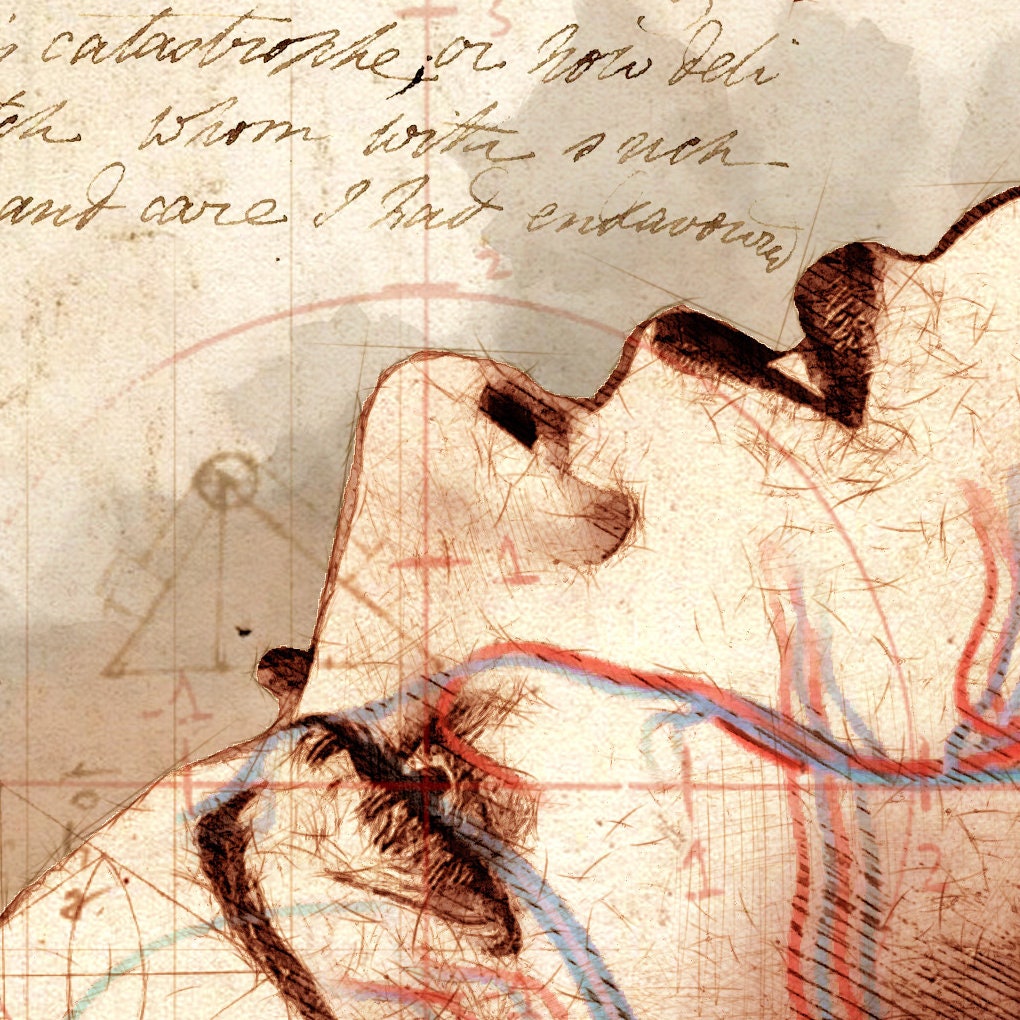 catastrophe, or how deli
whom with such
and care I had endavoured
3
2
1
-1
1
2
2